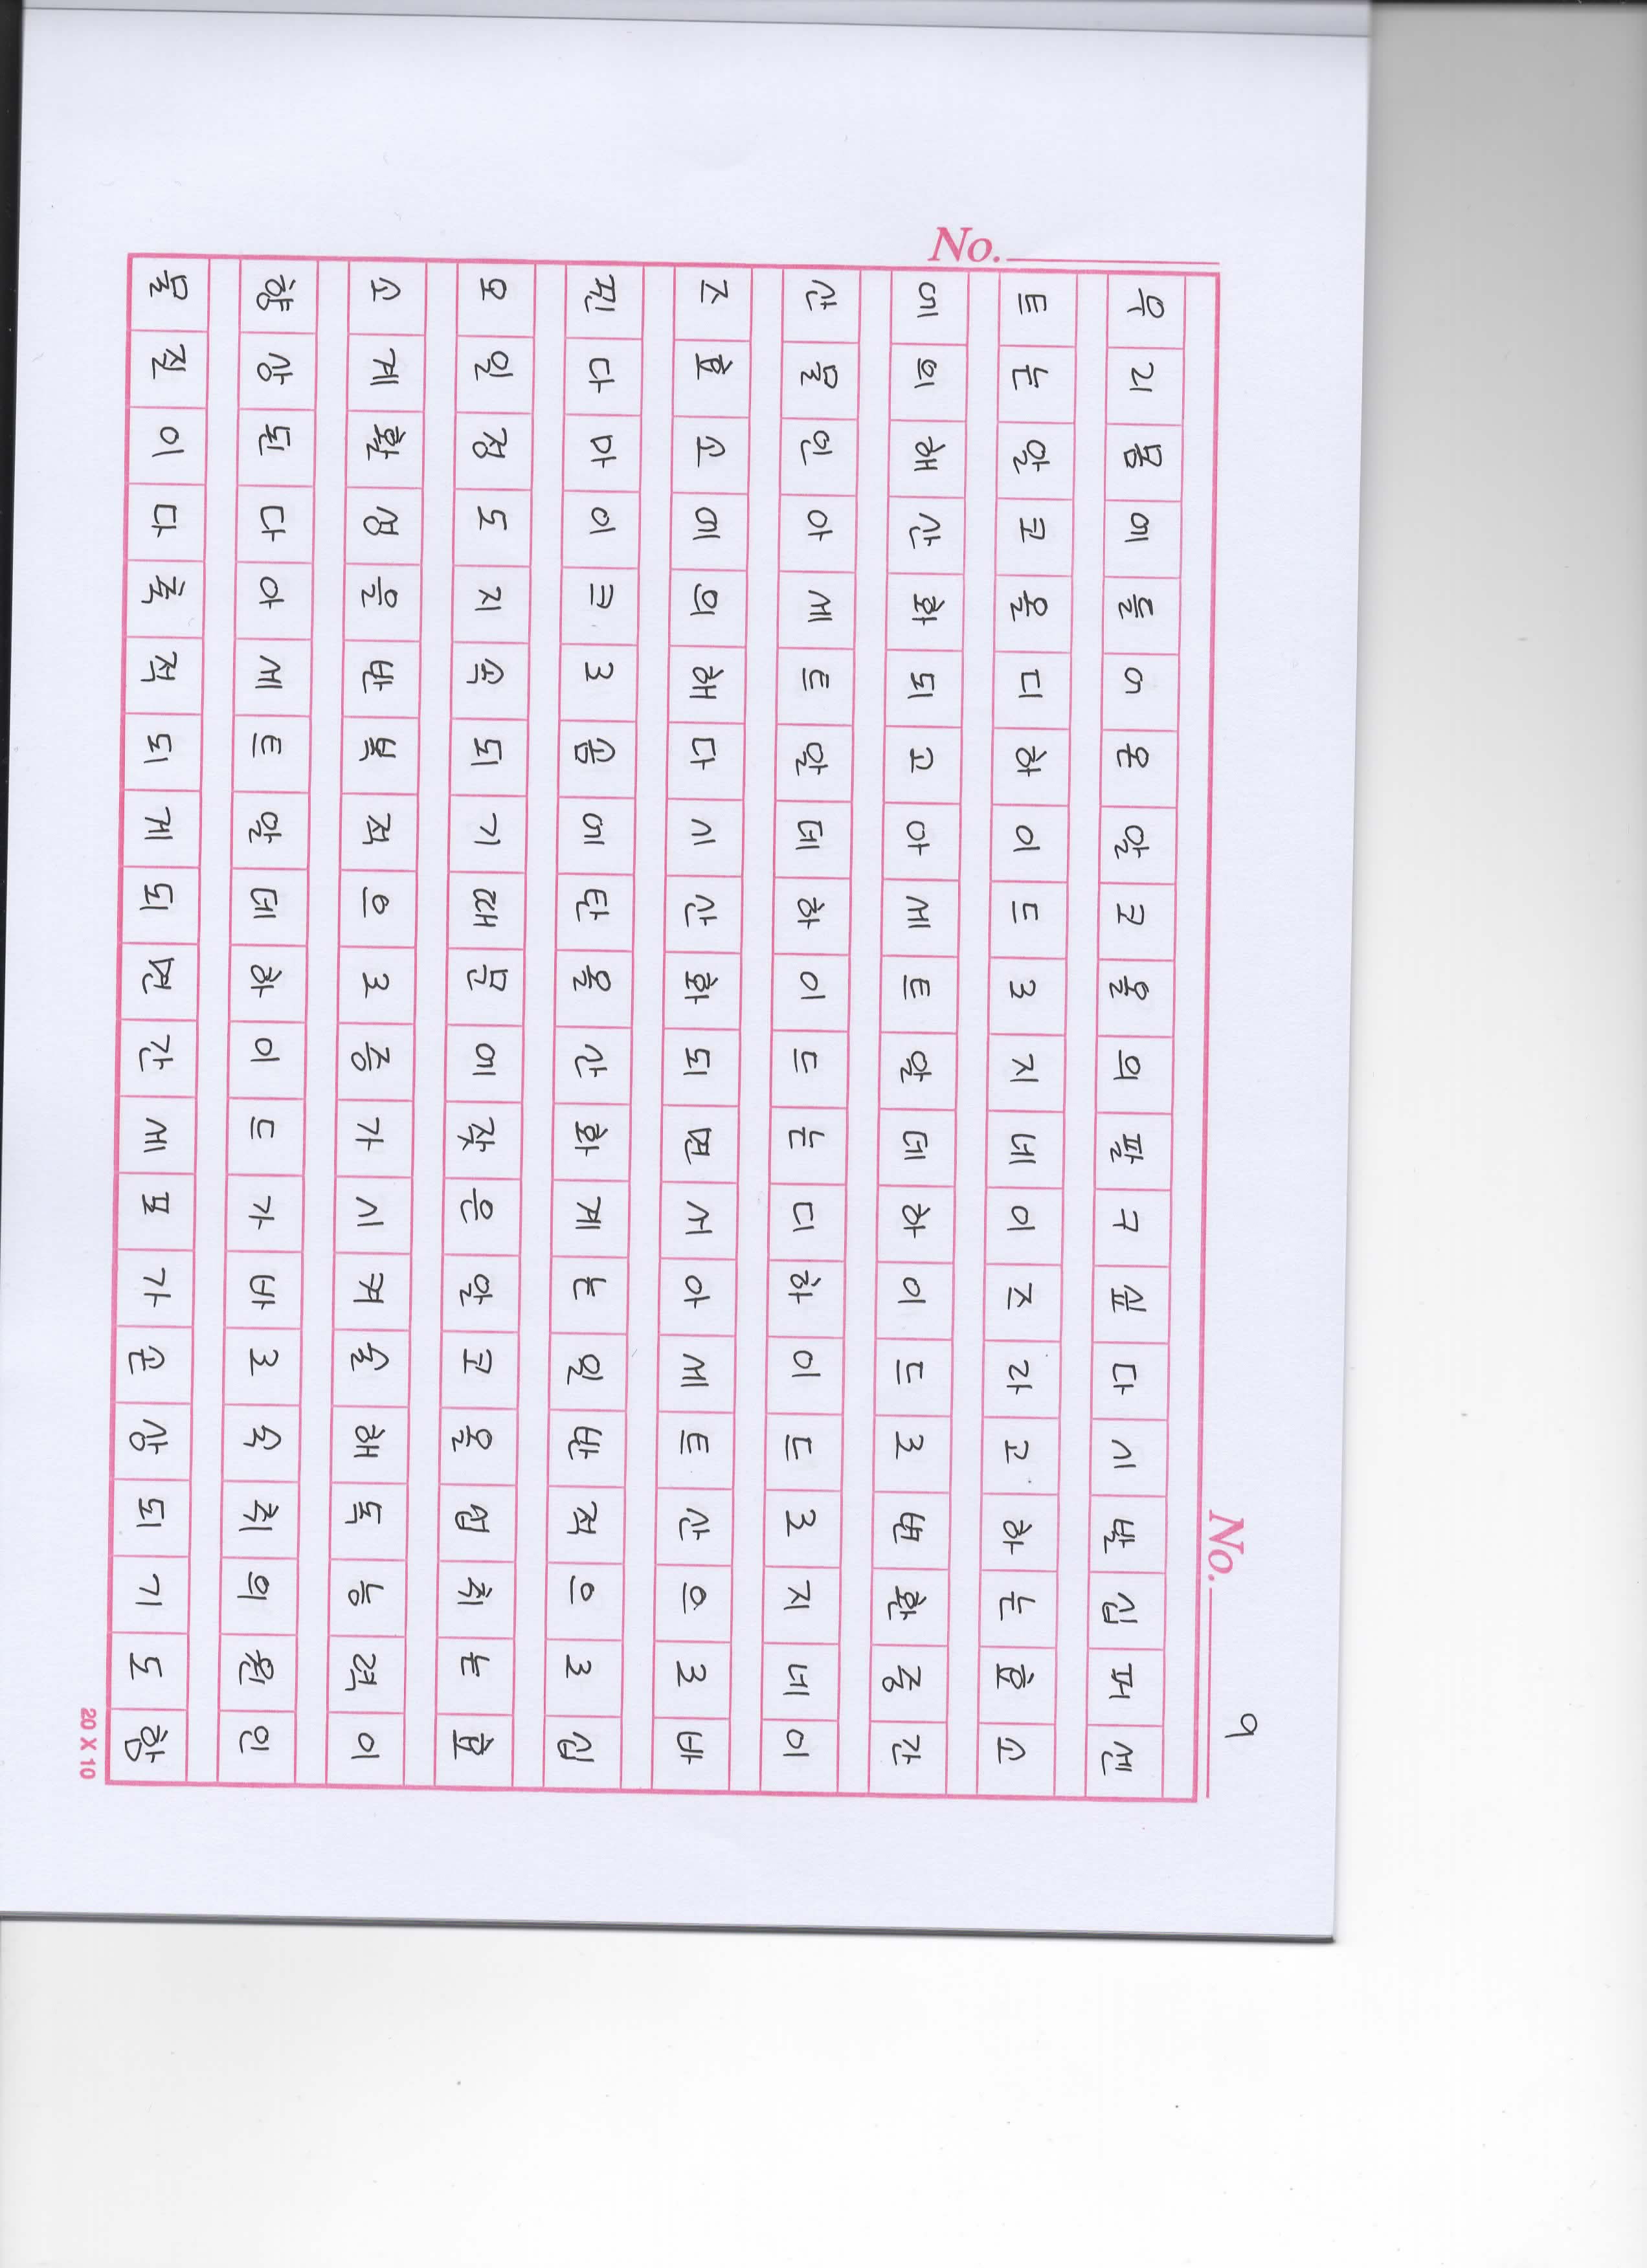 No.
No. 9
우리몸에들어온알코올의팔구십다시백십퍼센
트는알코올디하이드로지네이즈라고하는효소
에의해산화되고아세트알데하이드로변환중간
산물인아세트알데하이드는디하이드로지네이
즈효소에의해다시산화되면서아세트산으로바
뀐다마이크로솜에탄올산화계는일반적으로십
오일정도지속되기때문에잦은알코올섭취는효
소계활성을반복적으로증가시켜술해독능력이
향상된다아세트알데하이드가바로숙취의원인
물질이다축적되게되면간세포가손상되기도함
20 X 10